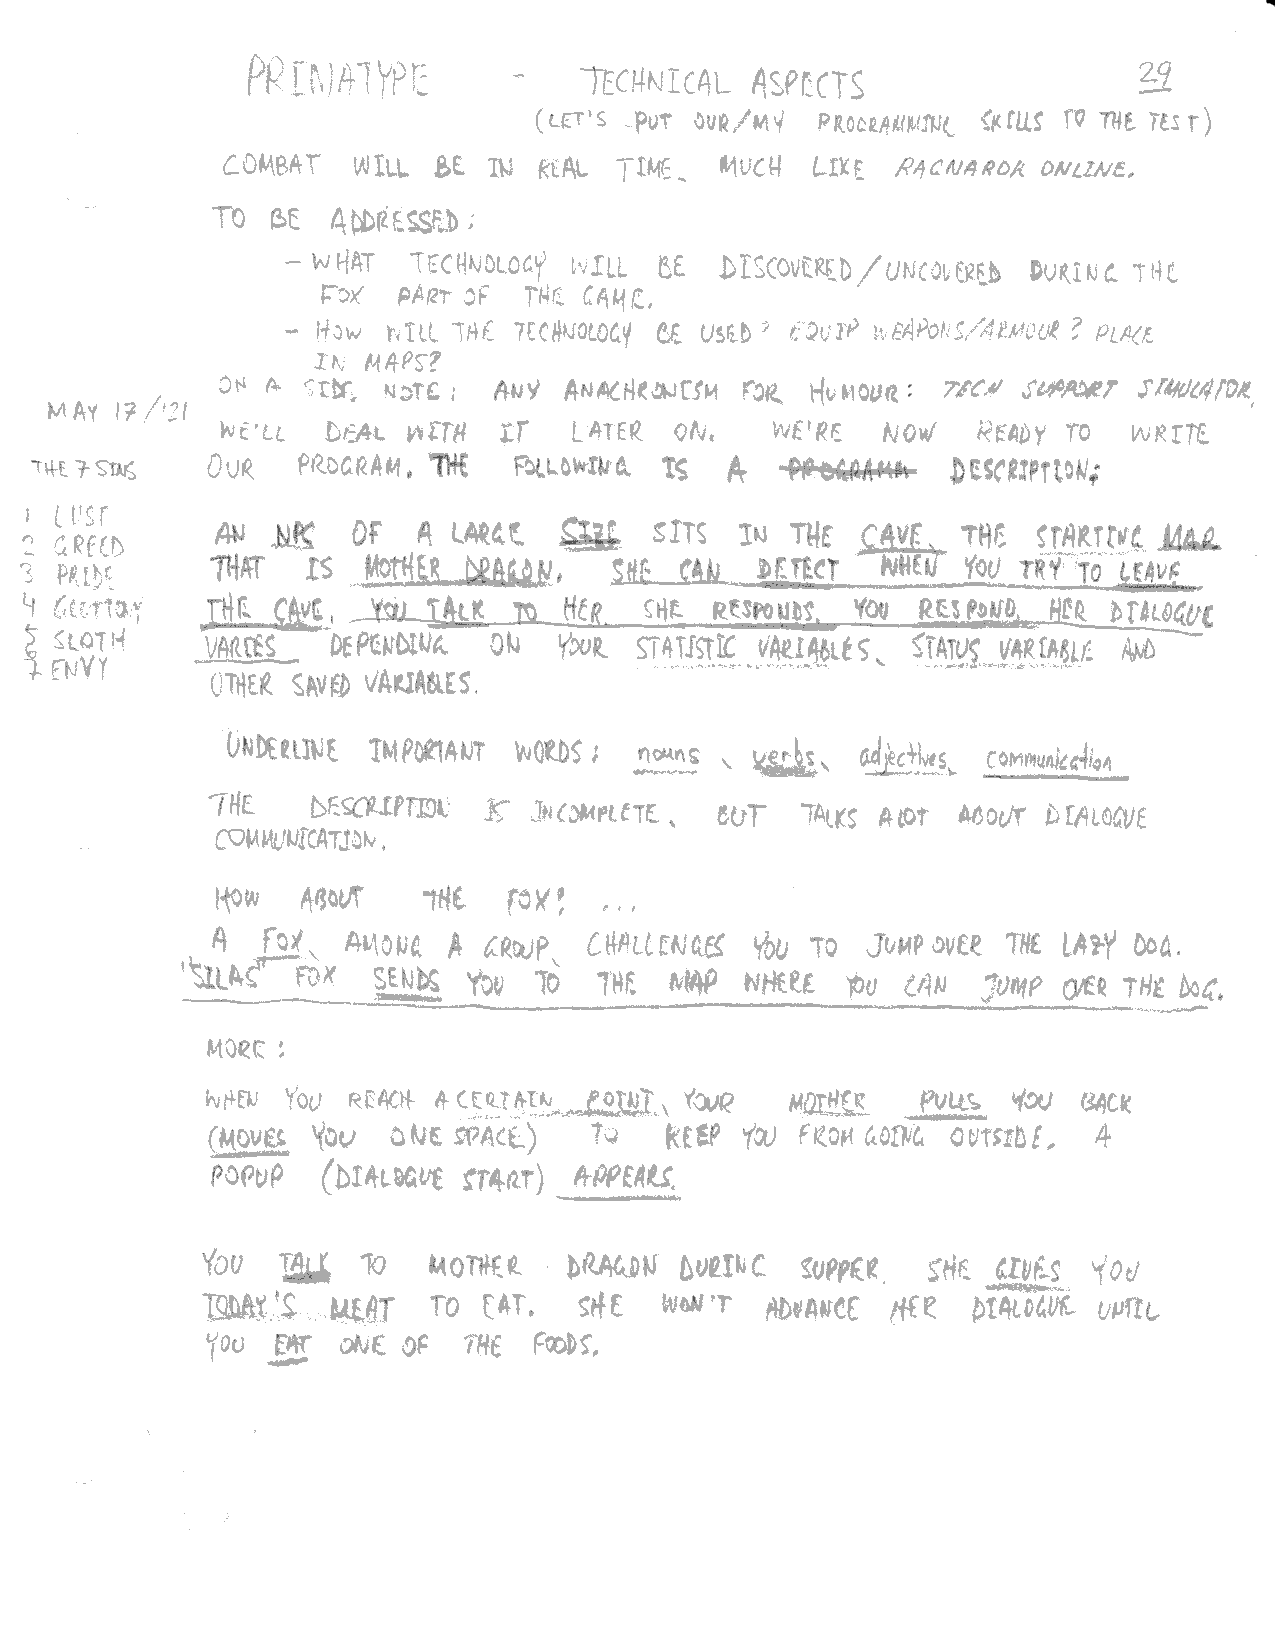 PRIMATYPE - TECHNICAL ASPECTS 29
(LET'S PUT OUR/MY PROGRAMMING SKILLS TO THE TEST)
COMBAT WILL BE IN REAL TIME, MUCH LIKE RAGNAROK ONLINE.
TO BE ADDRESSED:
- WHAT TECHNOLOGY WILL BE DISCOVERED/UNCOVERED DURING THE
FOX PART OF THE GAME.
- HOW WILL THE TECHNOLOGY BE USED? EQUIP WEAPONS/ARMOUR? PLACE
IN MAPS?
ON A SIDE NOTE: ANY ANACHRONISM FOR HUMOUR: TECH SUPPORT SIMULATOR,
MAY 17/'21
WE'LL DEAL WITH IT LATER ON. WE'RE NOW READY TO WRITE
OUR PROGRAM. THE FOLLOWING IS A PROGRAMM DESCRIPTION:
THE 7 SINS
1 LUST
2 GREED
3 PRIDE
4 GLUTTONY
5 SLOTH
7 ENVY
AN NPC OF A LARGE SIZE SITS IN THE CAVE, THE STARTING MAP
THAT IS MOTHER DRAGON. SHE CAN DETECT WHEN YOU TRY TO LEAVE
THE CAVE, YOU TALK TO HER. SHE RESPONDS. YOU RESPOND. HER DIALOGUE
VARIES DEPENDING ON YOUR STATISTIC VARIABLES, STATUS VARIABLE AND
OTHER SAVED VARIABLES.
UNDERLINE IMPORTANT WORDS: nouns, verbs, adjectives, communication
THE DESCRIPTION IS INCOMPLETE, BUT TALKS A LOT ABOUT DIALOGUE
COMMUNICATION.
HOW ABOUT THE FOX? ...
A FOX, AMONG A GROUP, CHALLENGES YOU TO JUMP OVER THE LAZY DOG.
'SILAS' FOX SENDS YOU TO THE MAP WHERE YOU CAN JUMP OVER THE DOG.
MORE:
WHEN YOU REACH A CERTAIN POINT, YOUR MOTHER PULLS YOU BACK
(MOVES YOU ONE SPACE) TO KEEP YOU FROM GOING OUTSIDE. A
POPUP (DIALOGUE START) APPEARS.
YOU TALK TO MOTHER DRAGON DURING SUPPER. SHE GIVES YOU
TODAY'S MEAT TO EAT. SHE WON'T ADVANCE HER DIALOGUE UNTIL
YOU EAT ONE OF THE FOODS.